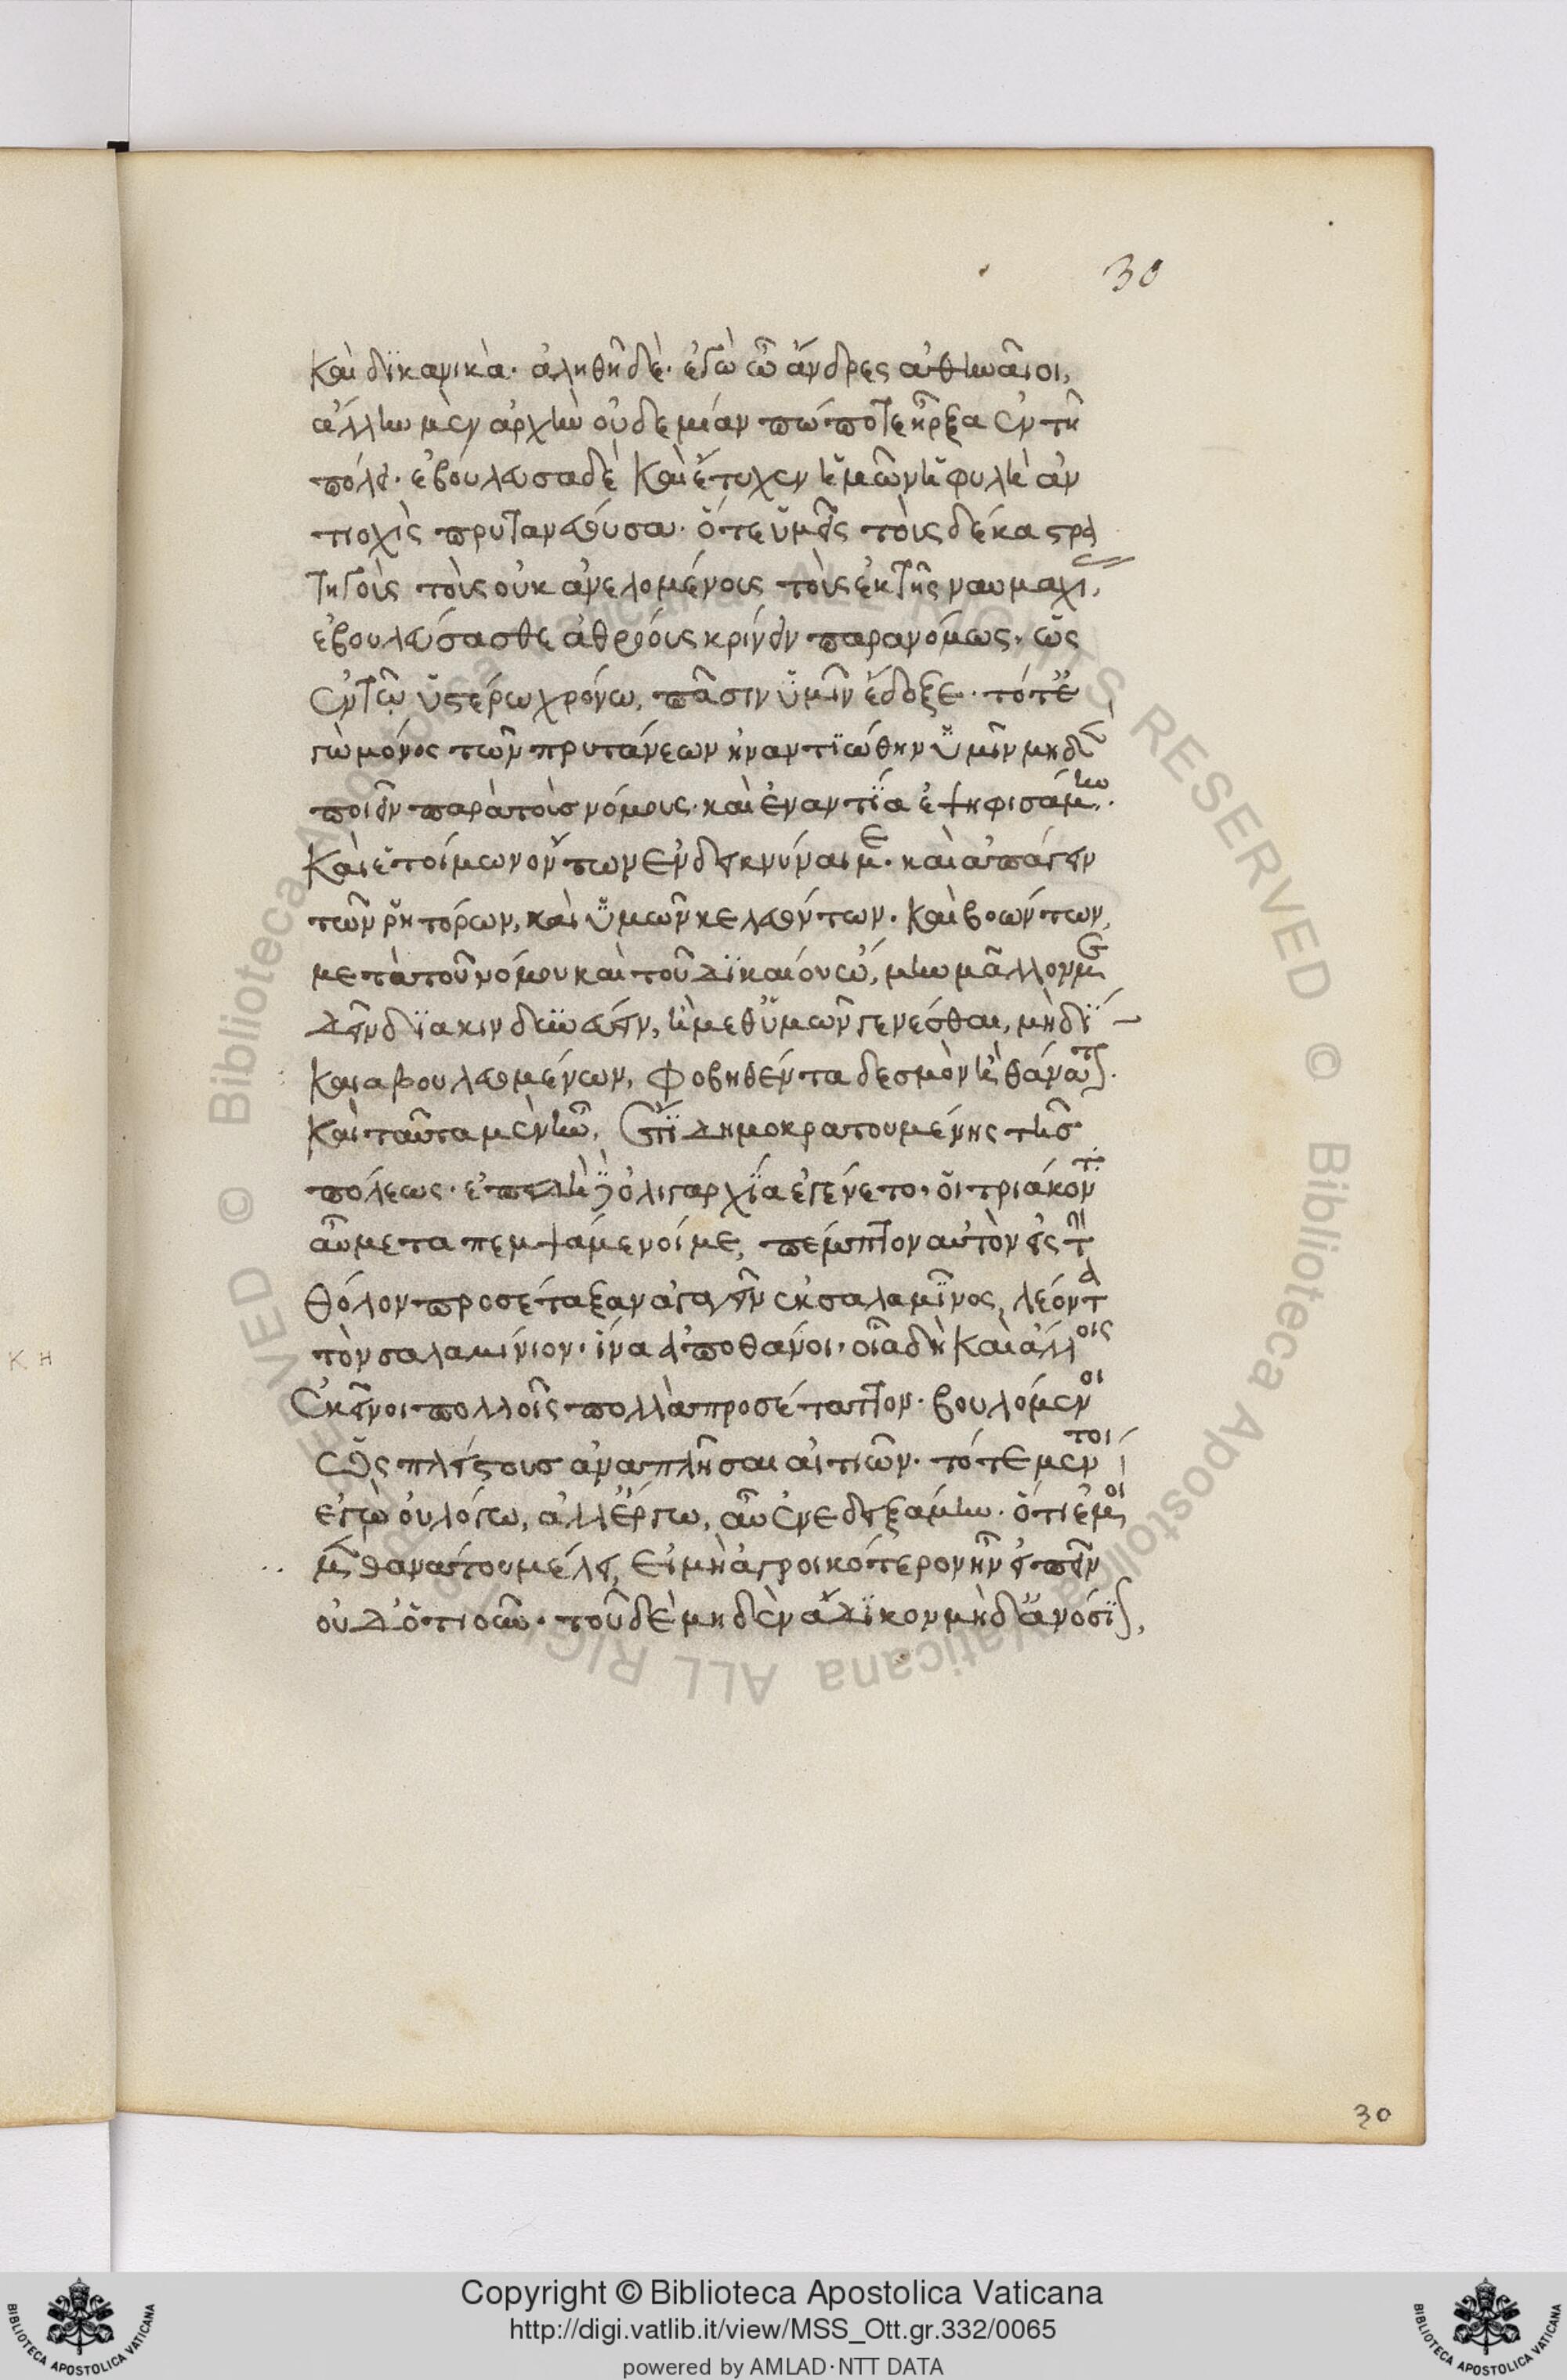 30
καὶ δικανικὰ· ἀληθῆ δὲ· ἐγὼ ὦ ἄνδρες ἀθηναῖοι,
ἄλλην μὲν ἀρχὴν οὐδεμίαν πώποτε ἦρξα ἐν τῆ
πόλει· ἐβούλευσα δὲ καὶ ἔτυχεν ἡμῶν ἡ φυλὴ ἀν
τιοχὶς πρυτανεύουσα· ὅτε ὑμεῖς τοὺς δέκα στρα
τηγοὺς τοὺς οὐκ ἀνελομένους τοὺς ἐκ τῆς ναυμαχί
ἐβουλεύσασθε ἀθρόους κρίνειν παρανόμως· ὡς
ἐν τῶ ὑστέρω χρόνω, πᾶσιν ὑμῖν ἔδοξε· τότ' ἐ
γὼ μόνος τῶν πρυτάνεων ἠναντιώθην ὑμῖν μηδὲν
ποιεῖν παρὰ τοὺς νόμους· καὶ ἐναντία ἐψηφισάμην·
καὶ ἑτοίμων ὄντων ἐνδεικνύναι με· καὶ ἀπάγειν
τῶν ῥητόρων, καὶ ὑμῶν κελευόντων· καὶ βοώντων,
μετὰ τοῦ νόμου καὶ τοῦ δικαίου ᾤμην μᾶλλον με
δεῖν διακινδυνεύειν, ἢ μεθ' ὑμῶν γενέσθαι, μὴ δί
καια βουλευομένων, φοβηθέντα δεσμὸν ἢ θάνατον·
καὶ ταῦτα μὲν ἦν, ἔτι δημοκρατουμένης τῆς
πόλεως· ἐπειδὴ δὲ ὀλιγαρχία ἐγένετο, οἱ τριάκοντ
αὖ μεταπεμψάμενοί με, πέμπτον αὐτὸν εἰς τὴν
θόλον προσέταξαν ἀγαγεῖν ἐκ σαλαμῖνος, λέοντα
τὸν σαλαμίνιον· ἵνα ἀποθάνοι· οἷα δὴ καὶ ἄλλοις
ἐκεῖνοι πολλοῖς πολλὰ προσέταττον· βουλόμενοι
ὡς πλείστους ἀναπλῆσαι αἰτιῶν· τότε μέντοι
ἐγὼ οὐ λόγω, ἀλλ' ἔργω, αὖ ἐνεδειξάμην· ὅτι ἐμοὶ
μὲν θανάτου μέλει, εἰ μὴ ἀγροικότερον ἦν εἰπεῖν
οὐδ' ὁτιοῦν· τοῦ δὲ μηδὲν ἄδικον μηδ' ἀνόσιον,
30
κη
Copyright © Biblioteca Apostolica Vaticana
http://digi.vatlib.it/view/MSS_Ott.gr.332/0065
powered by AMLAD·NTT DATA
BIBLIOTECA APOSTOLICA VATICANA
BIBLIOTECA APOSTOLICA VATICANA
© Biblioteca Apostolica Vaticana ALL RIGHTS RESERVED © Biblioteca Apostolica Vaticana ALL RIGHTS RESERVED